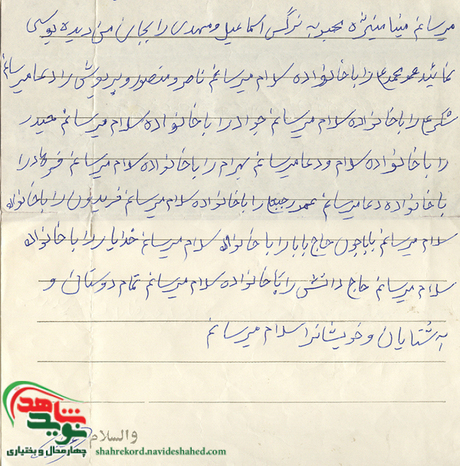 میرسانم مینا منیژه محبوبه نرگس اسماعیل و مهدی را بجای من دیده بوسی
نمائید عمو محمدعلی را با خانواده سلام میرسانم ناصر و منصور و پریوش را دعا میرسانم
شکرعلی را با خانواده سلام میرسانم جواد را با خانواده سلام میرسانم حیدر
را با خانواده سلام و دعا میرسانم بهرام را با خانواده سلام میرسانم فرهاد را
با خانواده دعا میرسانم عمو رجبعلی را با خانواده سلام میرسانم فریدون را با خانواده
سلام میرسانم باباجون حاج بابا را با خانواده سلام میرسانم خدایار را با خانواده
سلام میرسانم حاج دانشی را با خانواده سلام میرسانم تمام دوستان و
آشنایان و خویشان را سلام میرسانم
والسلام
نوید شاهد
چهارمحال و بختیاری
shahrekord.navideshahed.com